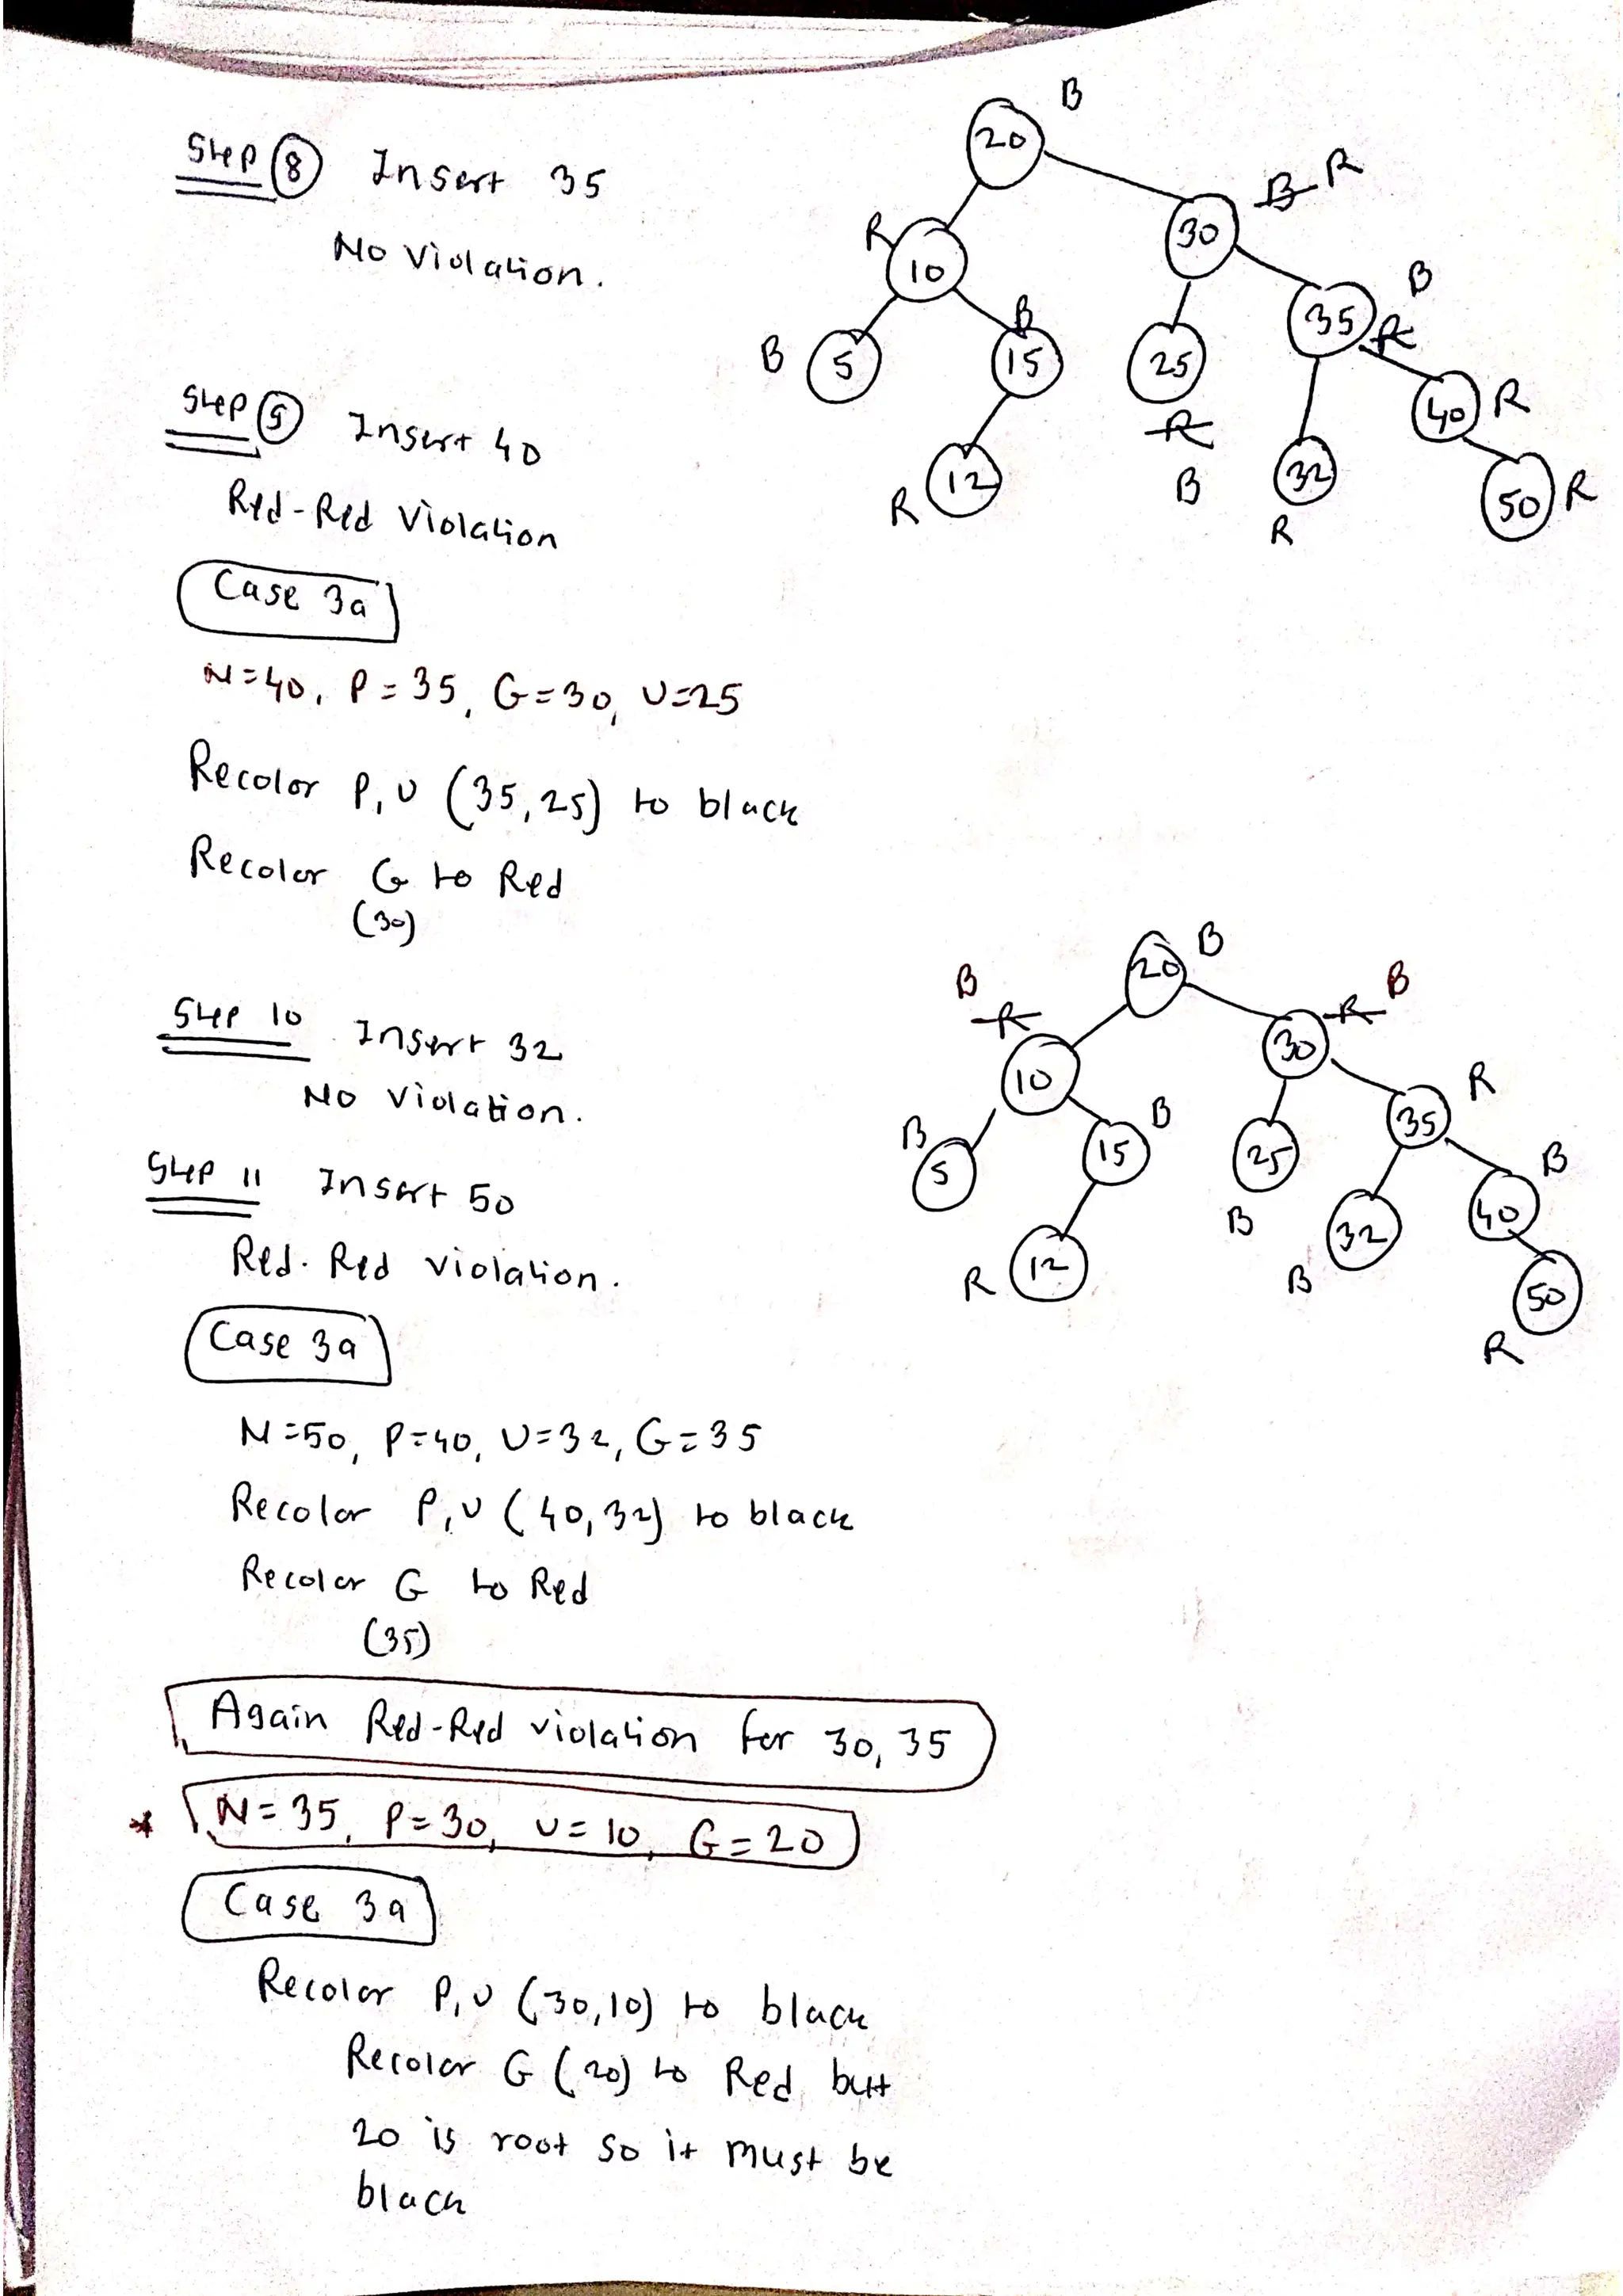 Step 8 Insert 35
No Violation.
Step 9 Insert 40
Red-Red Violation
Case 3a
N=40, P=35, G=30, U=25
Recolor P,U (35,25) to black
Recolor G to Red
(30)
Step 10 Insert 32
No Violation.
Step 11 Insert 50
Red-Red violation.
Case 3a
N=50, P=40, U=32, G=35
Recolor P,U (40,32) to black
Recolor G to Red
(35)
Again Red-Red violation for 30, 35
* N=35, P=30, U=10, G=20
Case 3a
Recolor P,U (30,10) to black
Recolor G (20) to Red but
20 is root so it must be
black
B
20
B R
R
30
10
B
B
35
R
B
5
15
25
40
R
R
B
R
12
32
50
R
R
B
20
B
B
R
R B
10
30
R
B
B
35
B
5
15
25
40
B
32
R
12
B
50
R